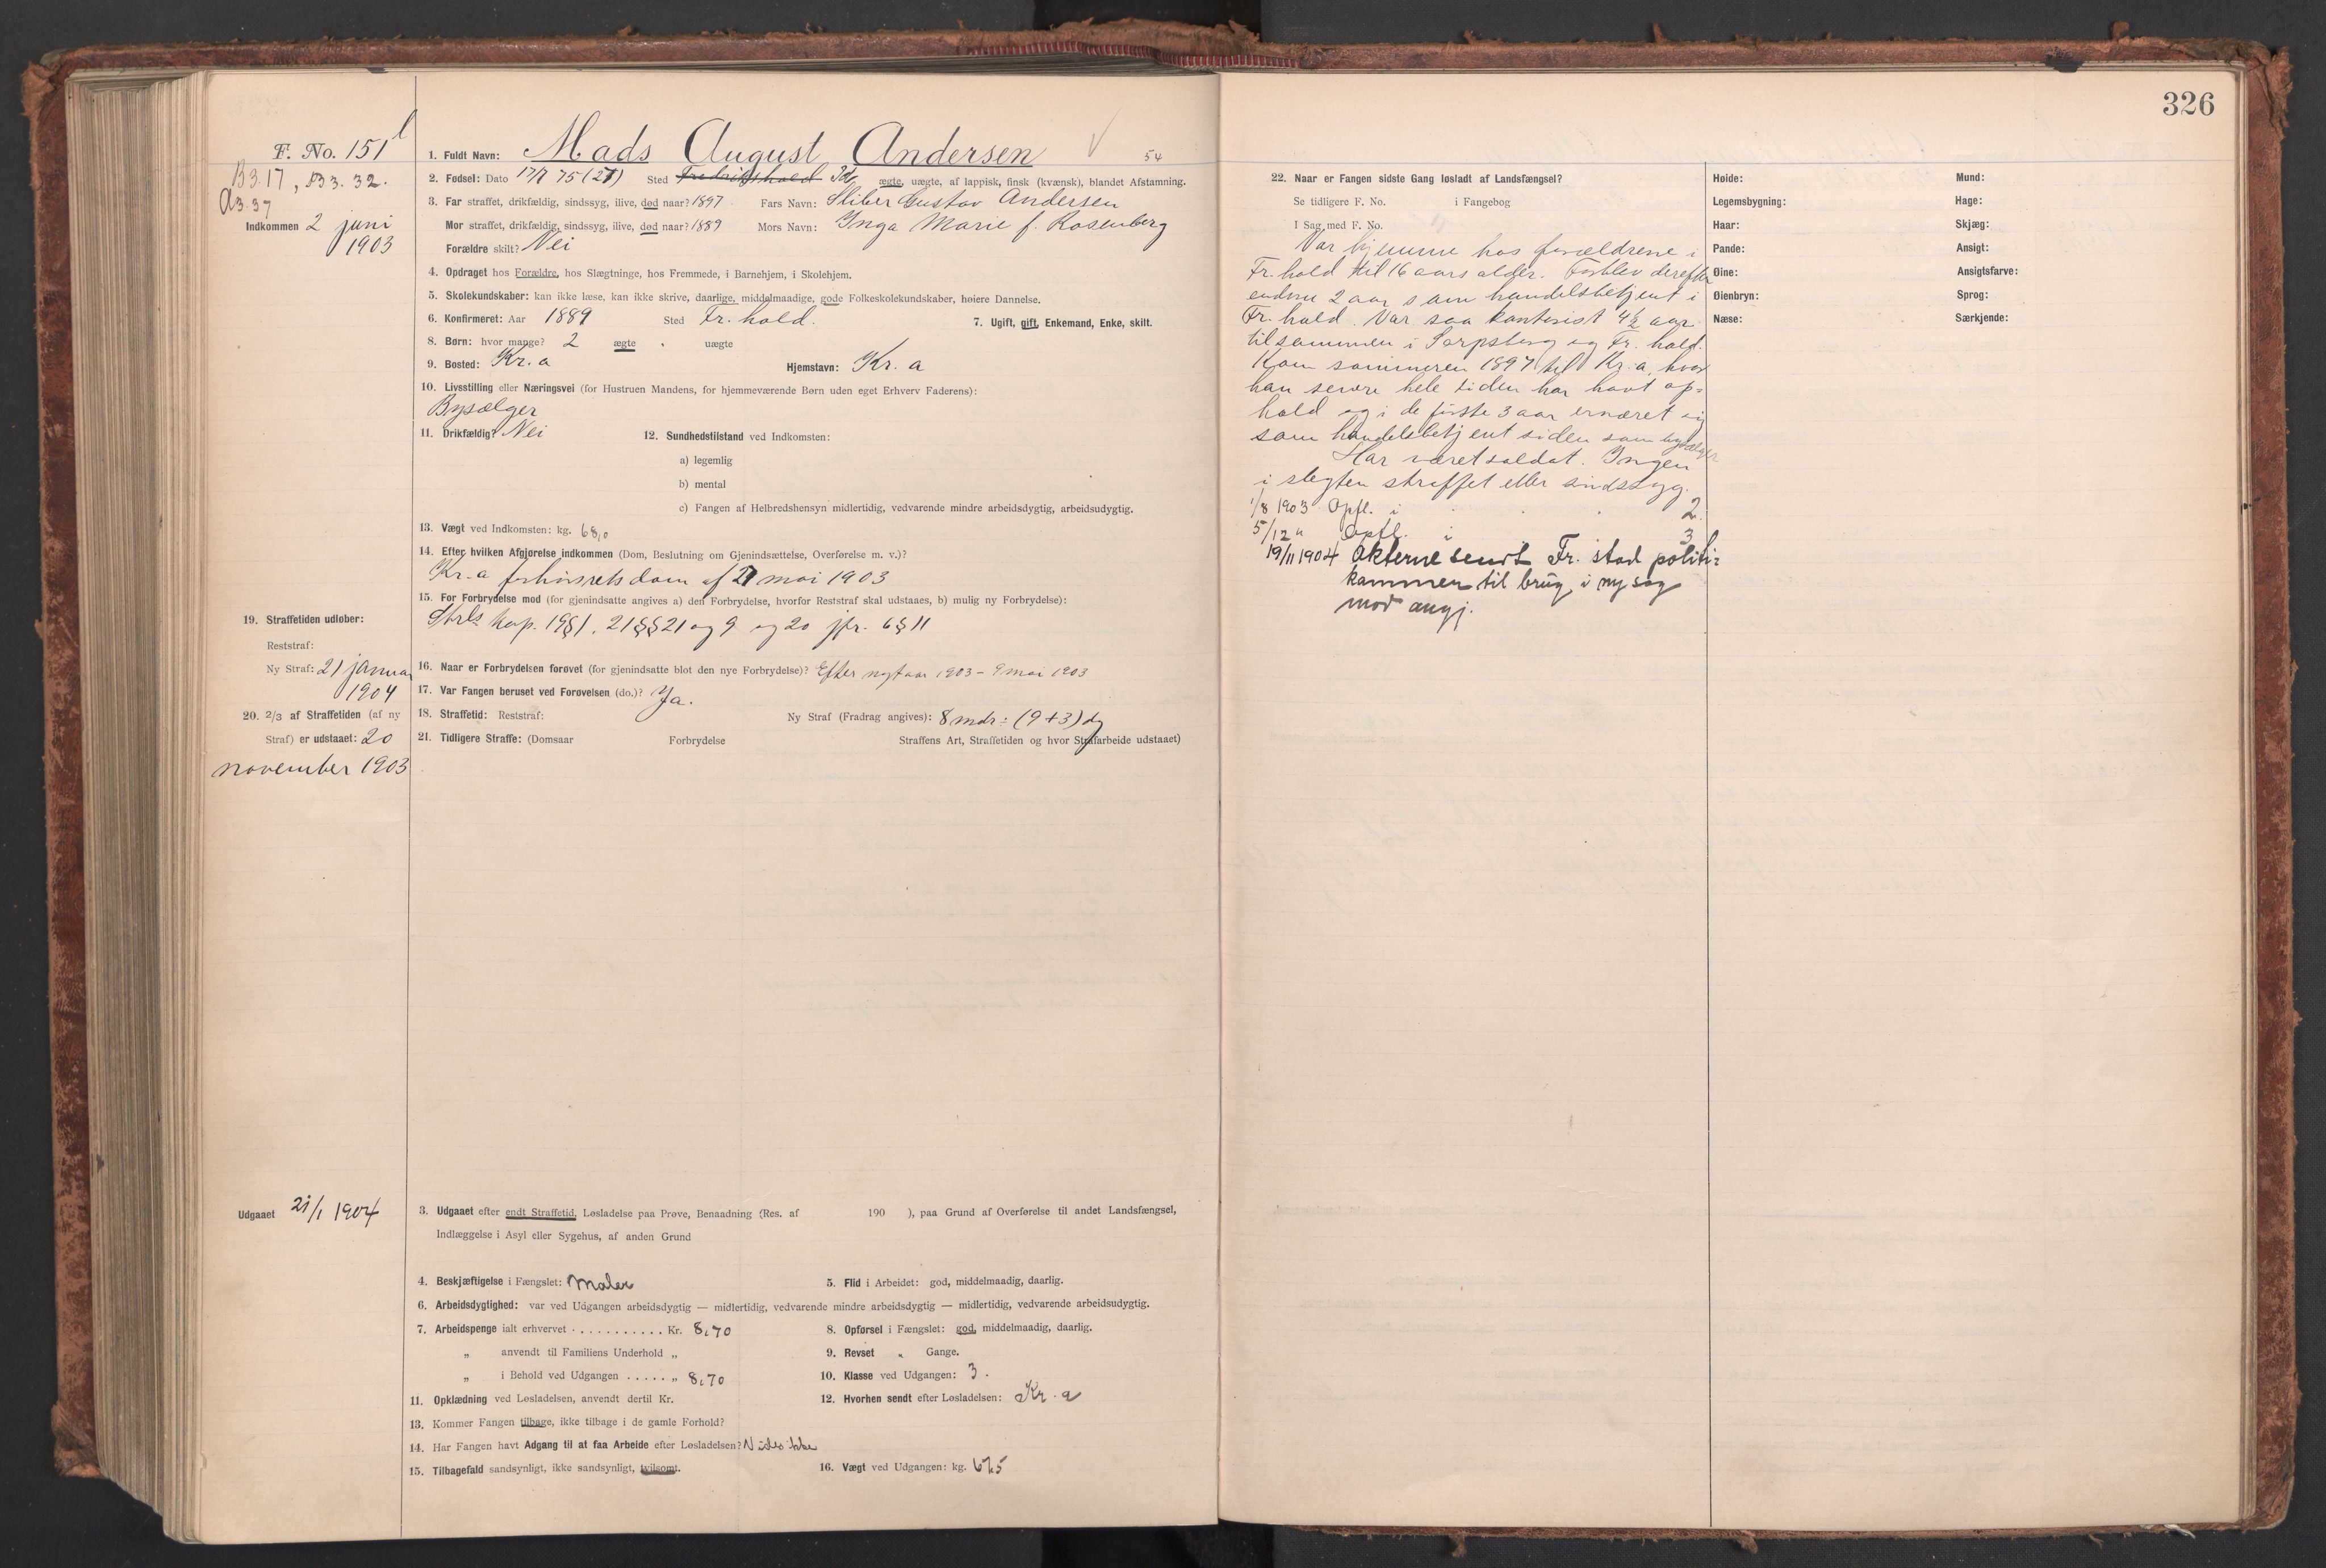 326
F. No. 151 l
B3.17, B3.32.
A3.37
Indkommen 2 juni
1903
1. Fuldt Navn: Mads August Andersen 54
2. Fødsel: Dato 17/7 75 (27) Sted Fredrikshald Id ægte, uægte, af lappisk, finsk (kvænsk), blandet Afstamning.
3. Far straffet, drikfældig, sindssyg, ilive, død naar? 1897 Fars Navn: Gustav Andersen
Mor straffet, drikfældig, sindssyg, ilive, død naar? 1889 Mors Navn: Inga Marie f. Rosenberg
Forældre skilt? Nei
4. Opdraget hos Forældre, hos Slægtninge, hos Fremmede, i Barnehjem, i Skolehjem.
5. Skolekundskaber: kan ikke læse, kan ikke skrive, daarlige, middelmaadige, gode Folkeskolekundskaber, høiere Dannelse.
6. Konfirmeret: Aar 1889 Sted Fr.hald. 7. Ugift, gift, Enkemand, Enke, skilt.
8. Børn: hvor mange? 2 ægte " uægte
9. Bosted: Kr.a Hjemstavn: Kr.a
10. Livsstilling eller Næringsvei (for Hustruen Mandens, for hjemmeværende Børn uden eget Erhverv Faderens):
Bysælger
11. Drikfældig? Nei 12. Sundhedstilstand ved Indkomsten:
a) legemlig
b) mental
c) Fangen af Helbredshensyn midlertidig, vedvarende mindre arbeidsdygtig, arbeidsudygtig.
13. Vægt ved Indkomsten: kg. 68,0
14. Efter hvilken Afgjørelse indkommen (Dom, Beslutning om Gjenindsættelse, Overførelse m. v.)?
Kr.a forhørsrets dom af 27 mai 1903
15. For Forbrydelse mod (for gjenindsatte angives a) den Forbrydelse, hvorfor Reststraf skal udstaaes, b) mulig ny Forbrydelse):
Strls kap. 19§1, 21§§21 og 9 og 20 jfr. 6§11
19. Straffetiden udløber:
Reststraf:
Ny Straf: 21 januar
1904
16. Naar er Forbrydelsen forøvet (for gjenindsatte blot den nye Forbrydelse)? Efter nytaar 1903 – 9 mai 1903
17. Var Fangen beruset ved Forøvelsen (do.)? Ja.
20. 2/3 af Straffetiden (af ny
Straf) er udstaaet: 20
november 1903
18. Straffetid: Reststraf: Ny Straf (Fradrag angives): 8 mdr ÷ (9+3) dg
21. Tidligere Straffe: (Domsaar Forbrydelse Straffens Art, Straffetiden og hvor Strafarbeide udstaaet)
Udgaaet 21/1 1904
3. Udgaaet efter endt Straffetid, Løsladelse paa Prøve, Benaadning (Res. af 190 ), paa Grund af Overførelse til andet Landsfængsel,
Indlæggelse i Asyl eller Sygehus, af anden Grund
4. Beskjæftigelse i Fængslet: Maler 5. Flid i Arbeidet: god, middelmaadig, daarlig.
6. Arbeidsdygtighed: var ved Udgangen arbeidsdygtig — midlertidig, vedvarende mindre arbeidsdygtig — midlertidig, vedvarende arbeidsudygtig.
7. Arbeidspenge ialt erhvervet . . . . . . . . . . . Kr. 8,70 8. Opførsel i Fængslet: god, middelmaadig, daarlig.
„ anvendt til Familiens Underhold „ 9. Revset " Gange.
„ i Behold ved Udgangen . . . . . „ 8,70 10. Klasse ved Udgangen: 3.
11. Opklædning ved Løsladelsen, anvendt dertil Kr. 12. Hvorhen sendt efter Løsladelsen: Kr.a
13. Kommer Fangen tilbage, ikke tilbage i de gamle Forhold?
14. Har Fangen havt Adgang til at faa Arbeide efter Løsladelsen? Vides ikke
15. Tilbagefald sandsynligt, ikke sandsynligt, tvilsomt. 16. Vægt ved Udgangen: kg. 67,5
22. Naar er Fangen sidste Gang løsladt af Landsfængsel?
Se tidligere F. No. i Fangebog
I Sag med F. No.
Var hjemme hos forældrene i
Fr.hald til 16 aars alder. Forblev derefter
endnu 2 aar som handelsbetjent i
Fr.hald. Var saa kontorist 4½ aar
tilsammen i Sarpsborg og Fr.hald.
Kom sommeren 1897 til Kr.a, hvor
han senere hele tiden har havt op=
hold og i de første 3 aar ernæret sig
som handelsbetjent siden som bysælger
Har været soldat. Ingen
i slegten straffet eller sindssyg.
1/8 1903 Opfl. i 2.
5/12 " Opfl. i 3
19/11 1904 Akterne sendt Fr.stad politi=
kammer til brug i ny sag
mod angj.
Høide: Mund:
Legemsbygning: Hage:
Haar: Skjæg:
Pande: Ansigt:
Øine: Ansigtsfarve:
Øienbryn: Sprog:
Næse: Særkjende: